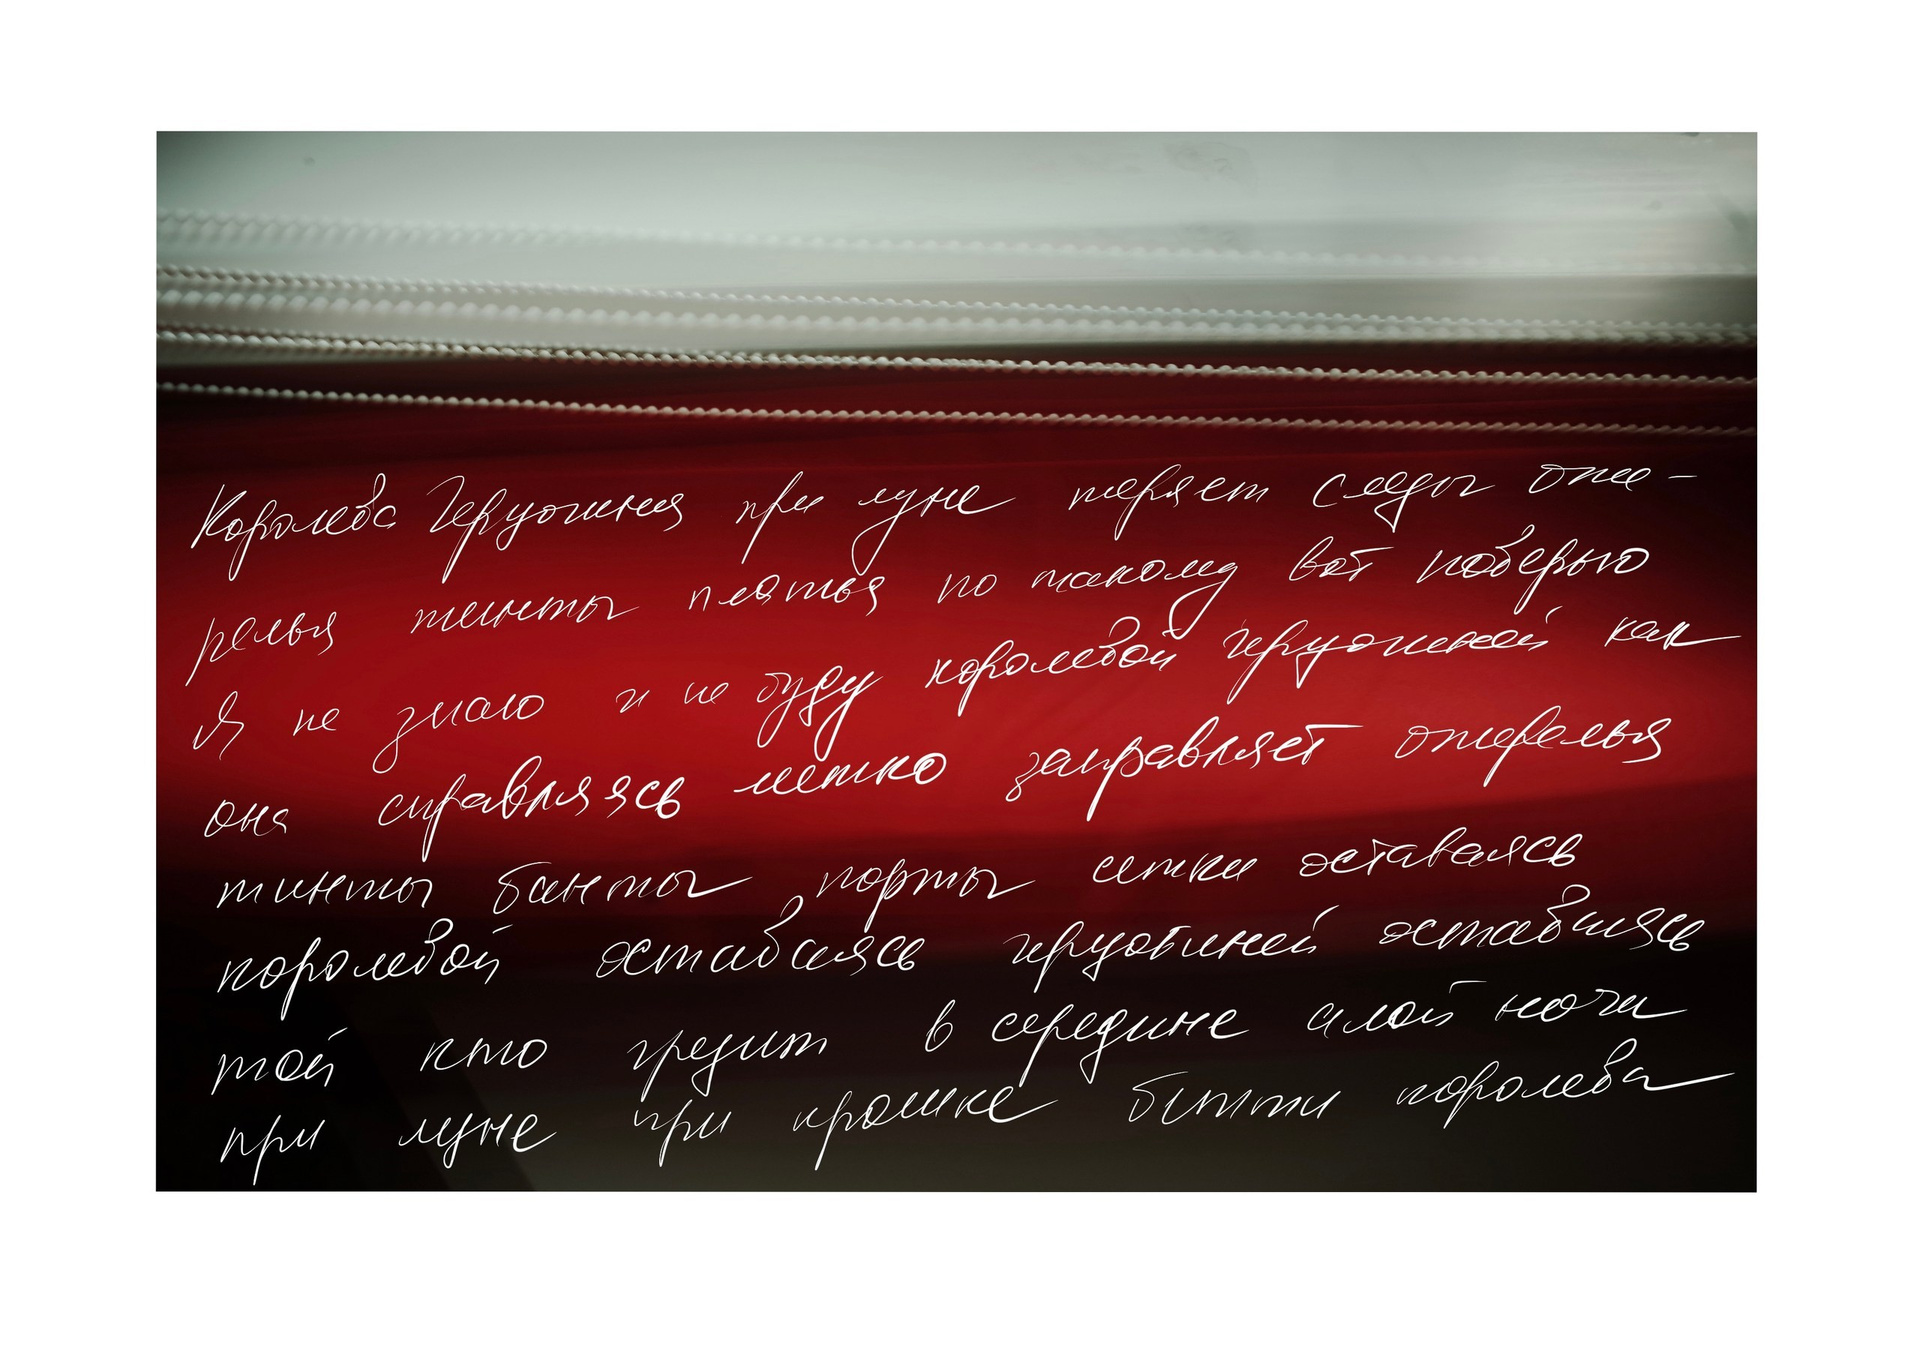 Королева Герцогиня при луне теряет следы оже-
релья тинты платья по такому вот поверью
Я не знаю и не буду королевой герцогиней как
она справляясь метко заправляет ожерелья
тинты банты порты сетки оставаясь
королевой оставаясь герцогиней оставаясь
той кто грезит в середине алой ночи
при луне при крошке Бетти королева